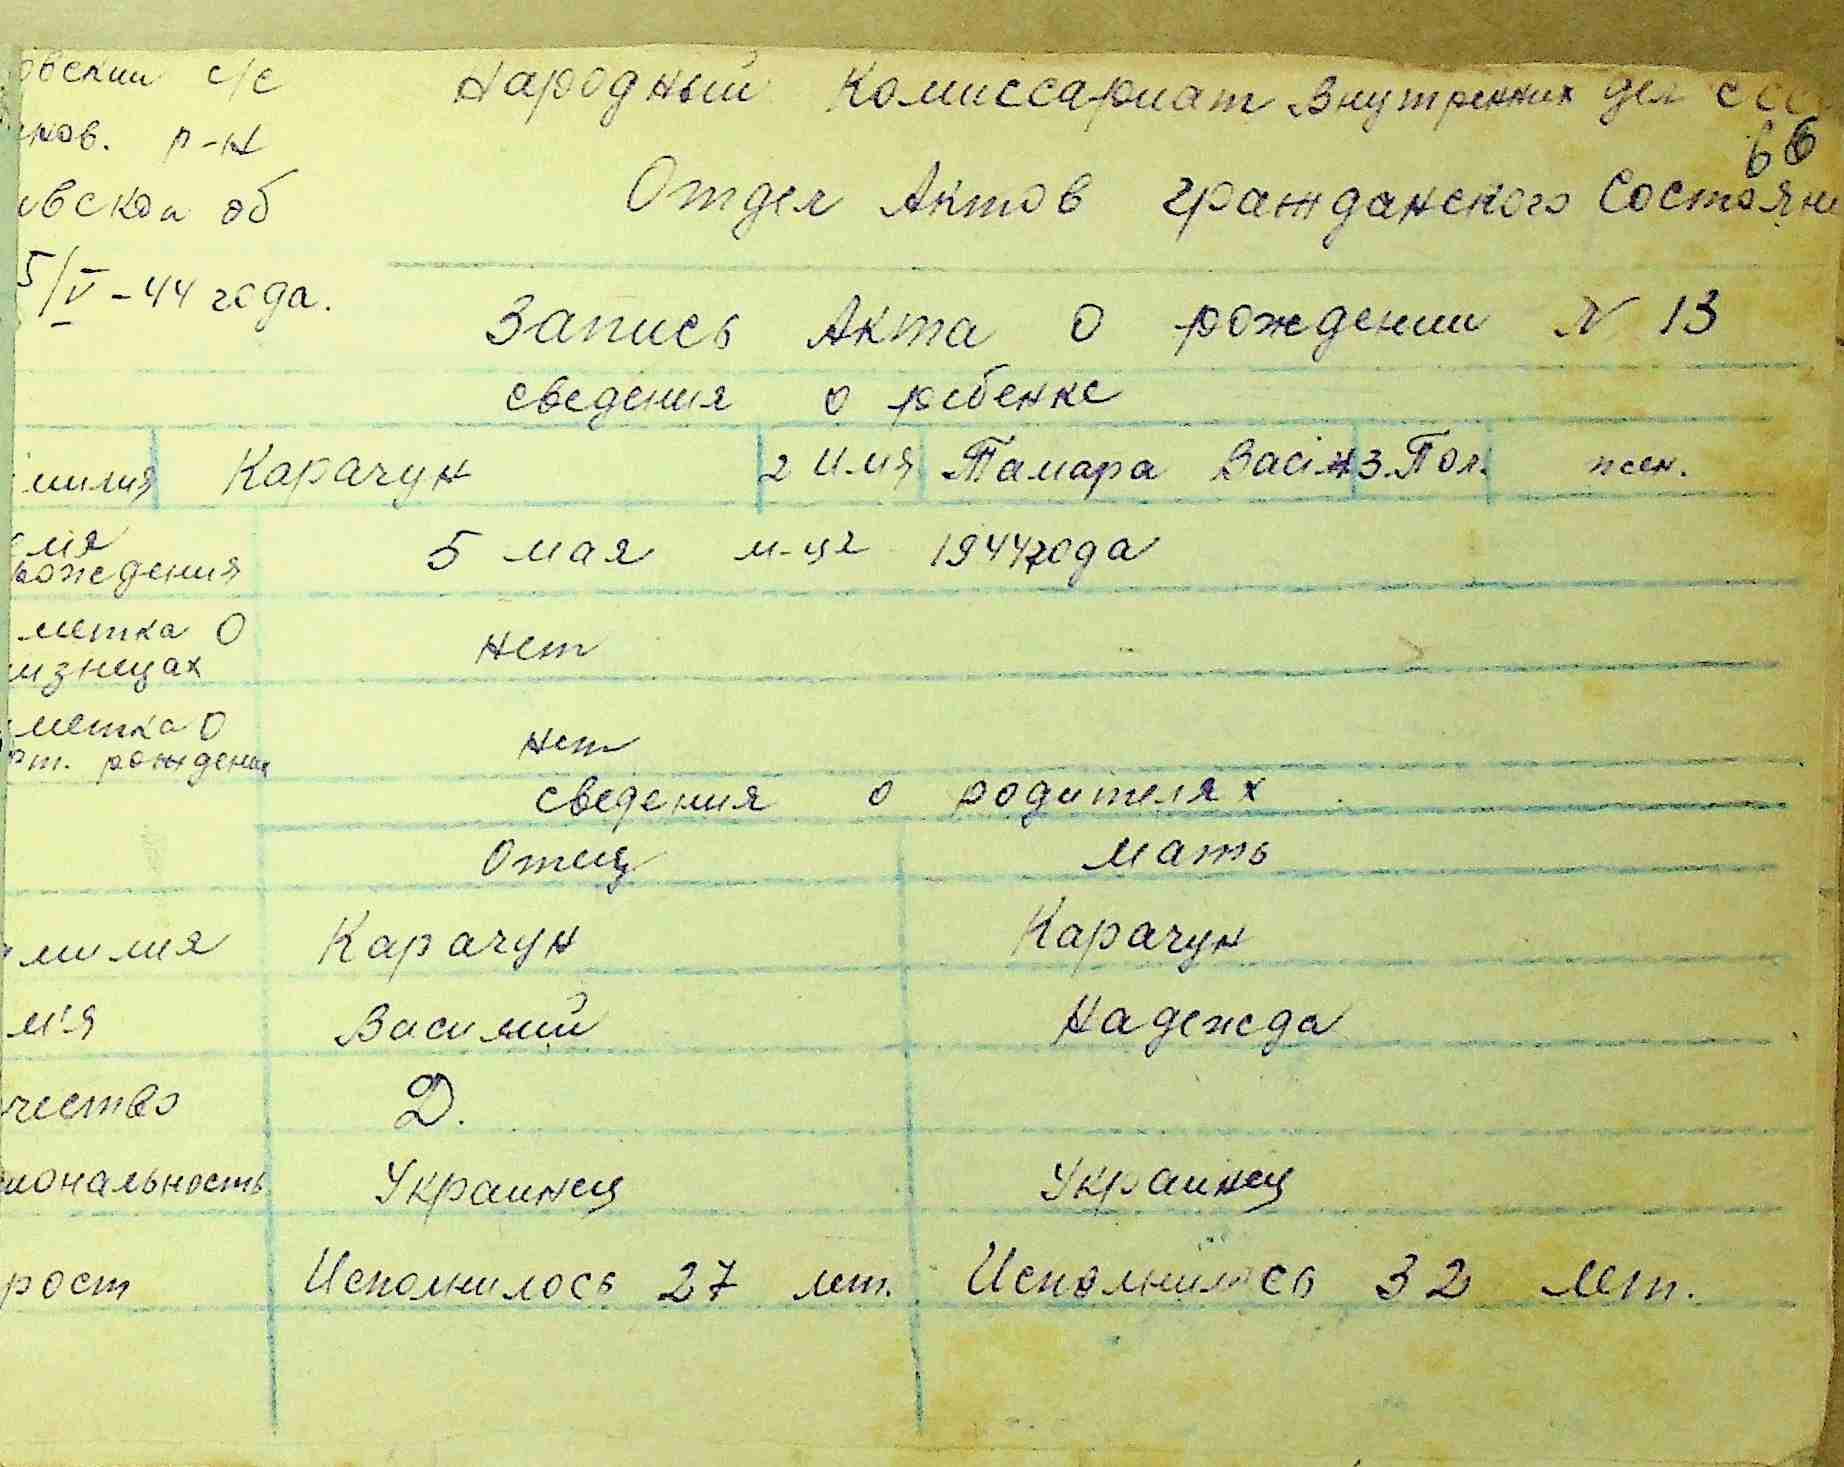 овский с/с
нов. р-н
ивской об
5/V - 44 года.
Народный Комиссариат Внутренних дел ССС
66
Отдел Актов гражданского Состояни
Запись Акта о рождении N 13
сведения о ребенке
милия Карачун 2 Имя Тамара Васи 3. Пол. жен.
емя рождения 5 мая м-ця 1944 года
метка о лизнецах нет
метка о рт. рождении нет
сведения о родителях
Отец мать
амилия Карачун Карачун
м'я Василий Надежда
чество Д.
иональность Украинец Украинец
рост Исполнилось 27 лет. Исполнилось 32 лет.